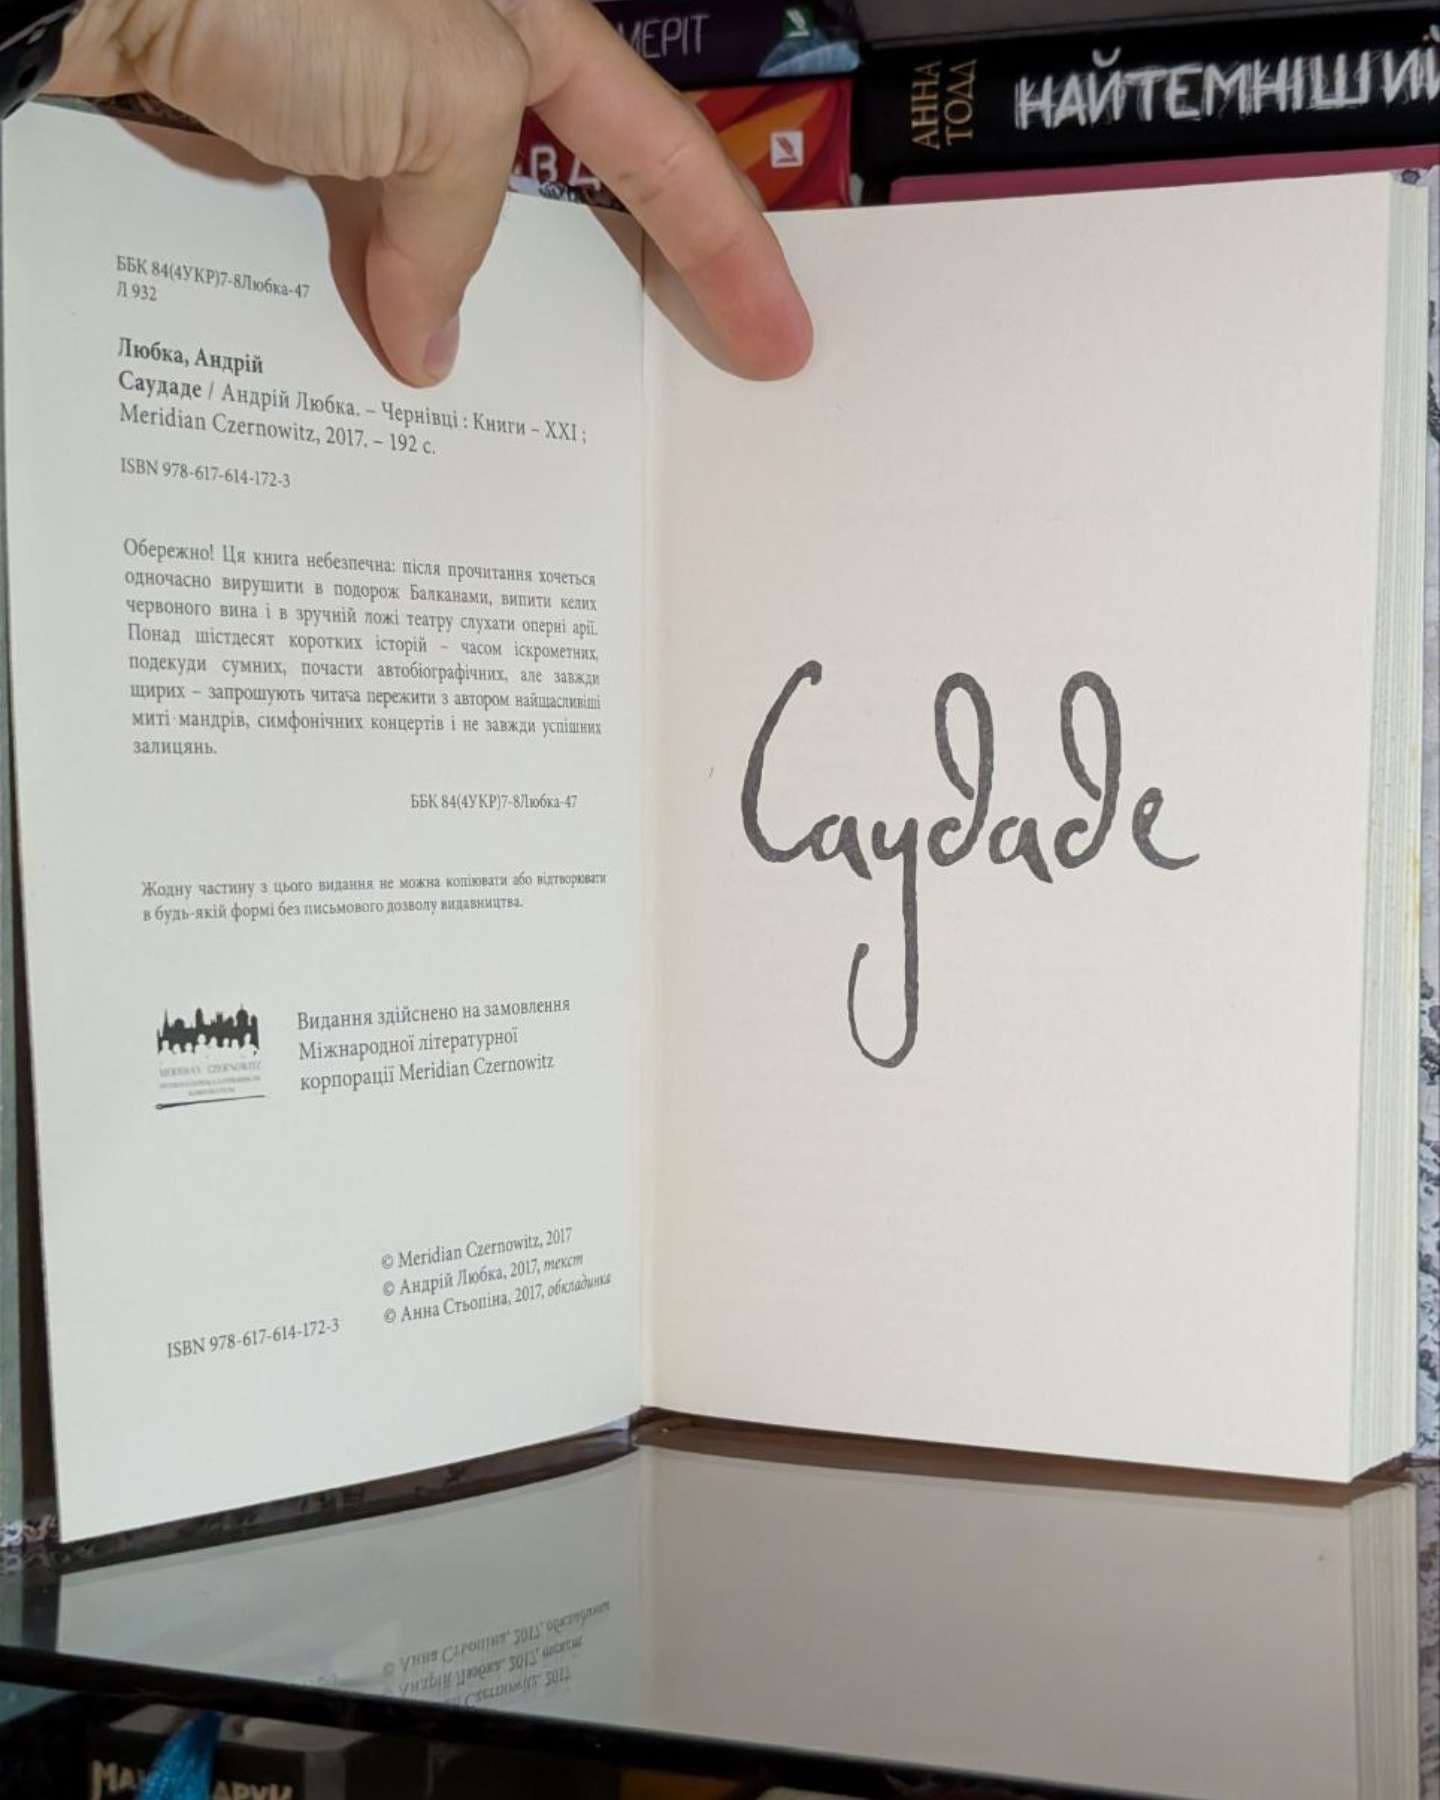 МЕРІТ
АННА
ТОДД
НАЙТЕМНІШИЙ
ББК 84(4УКР)7-8Любка-47
Л 932
Любка, Андрій
Саудаде / Андрій Любка. – Чернівці : Книги – ХХІ ;
Meridian Czernowitz, 2017. – 192 с.
ISBN 978-617-614-172-3
Обережно! Ця книга небезпечна: після прочитання хочеться
одночасно вирушити в подорож Балканами, випити келих
червоного вина і в зручній ложі театру слухати оперні арії.
Понад шістдесят коротких історій – часом іскрометних,
подекуди сумних, почасти автобіографічних, але завжди
щирих – запрошують читача пережити з автором найщасливіші
миті мандрів, симфонічних концертів і не завжди успішних
залицянь.
ББК 84(4УКР)7-8Любка-47
Жодну частину з цього видання не можна копіювати або відтворювати
в будь-якій формі без письмового дозволу видавництва.
MERIDIAN CZERNOWITZ
Видання здійснено на замовлення
Міжнародної літературної
корпорації Meridian Czernowitz
© Meridian Czernowitz, 2017
© Андрій Любка, 2017, текст
© Анна Стьопіна, 2017, обкладинка
ISBN 978-617-614-172-3
Саудаде